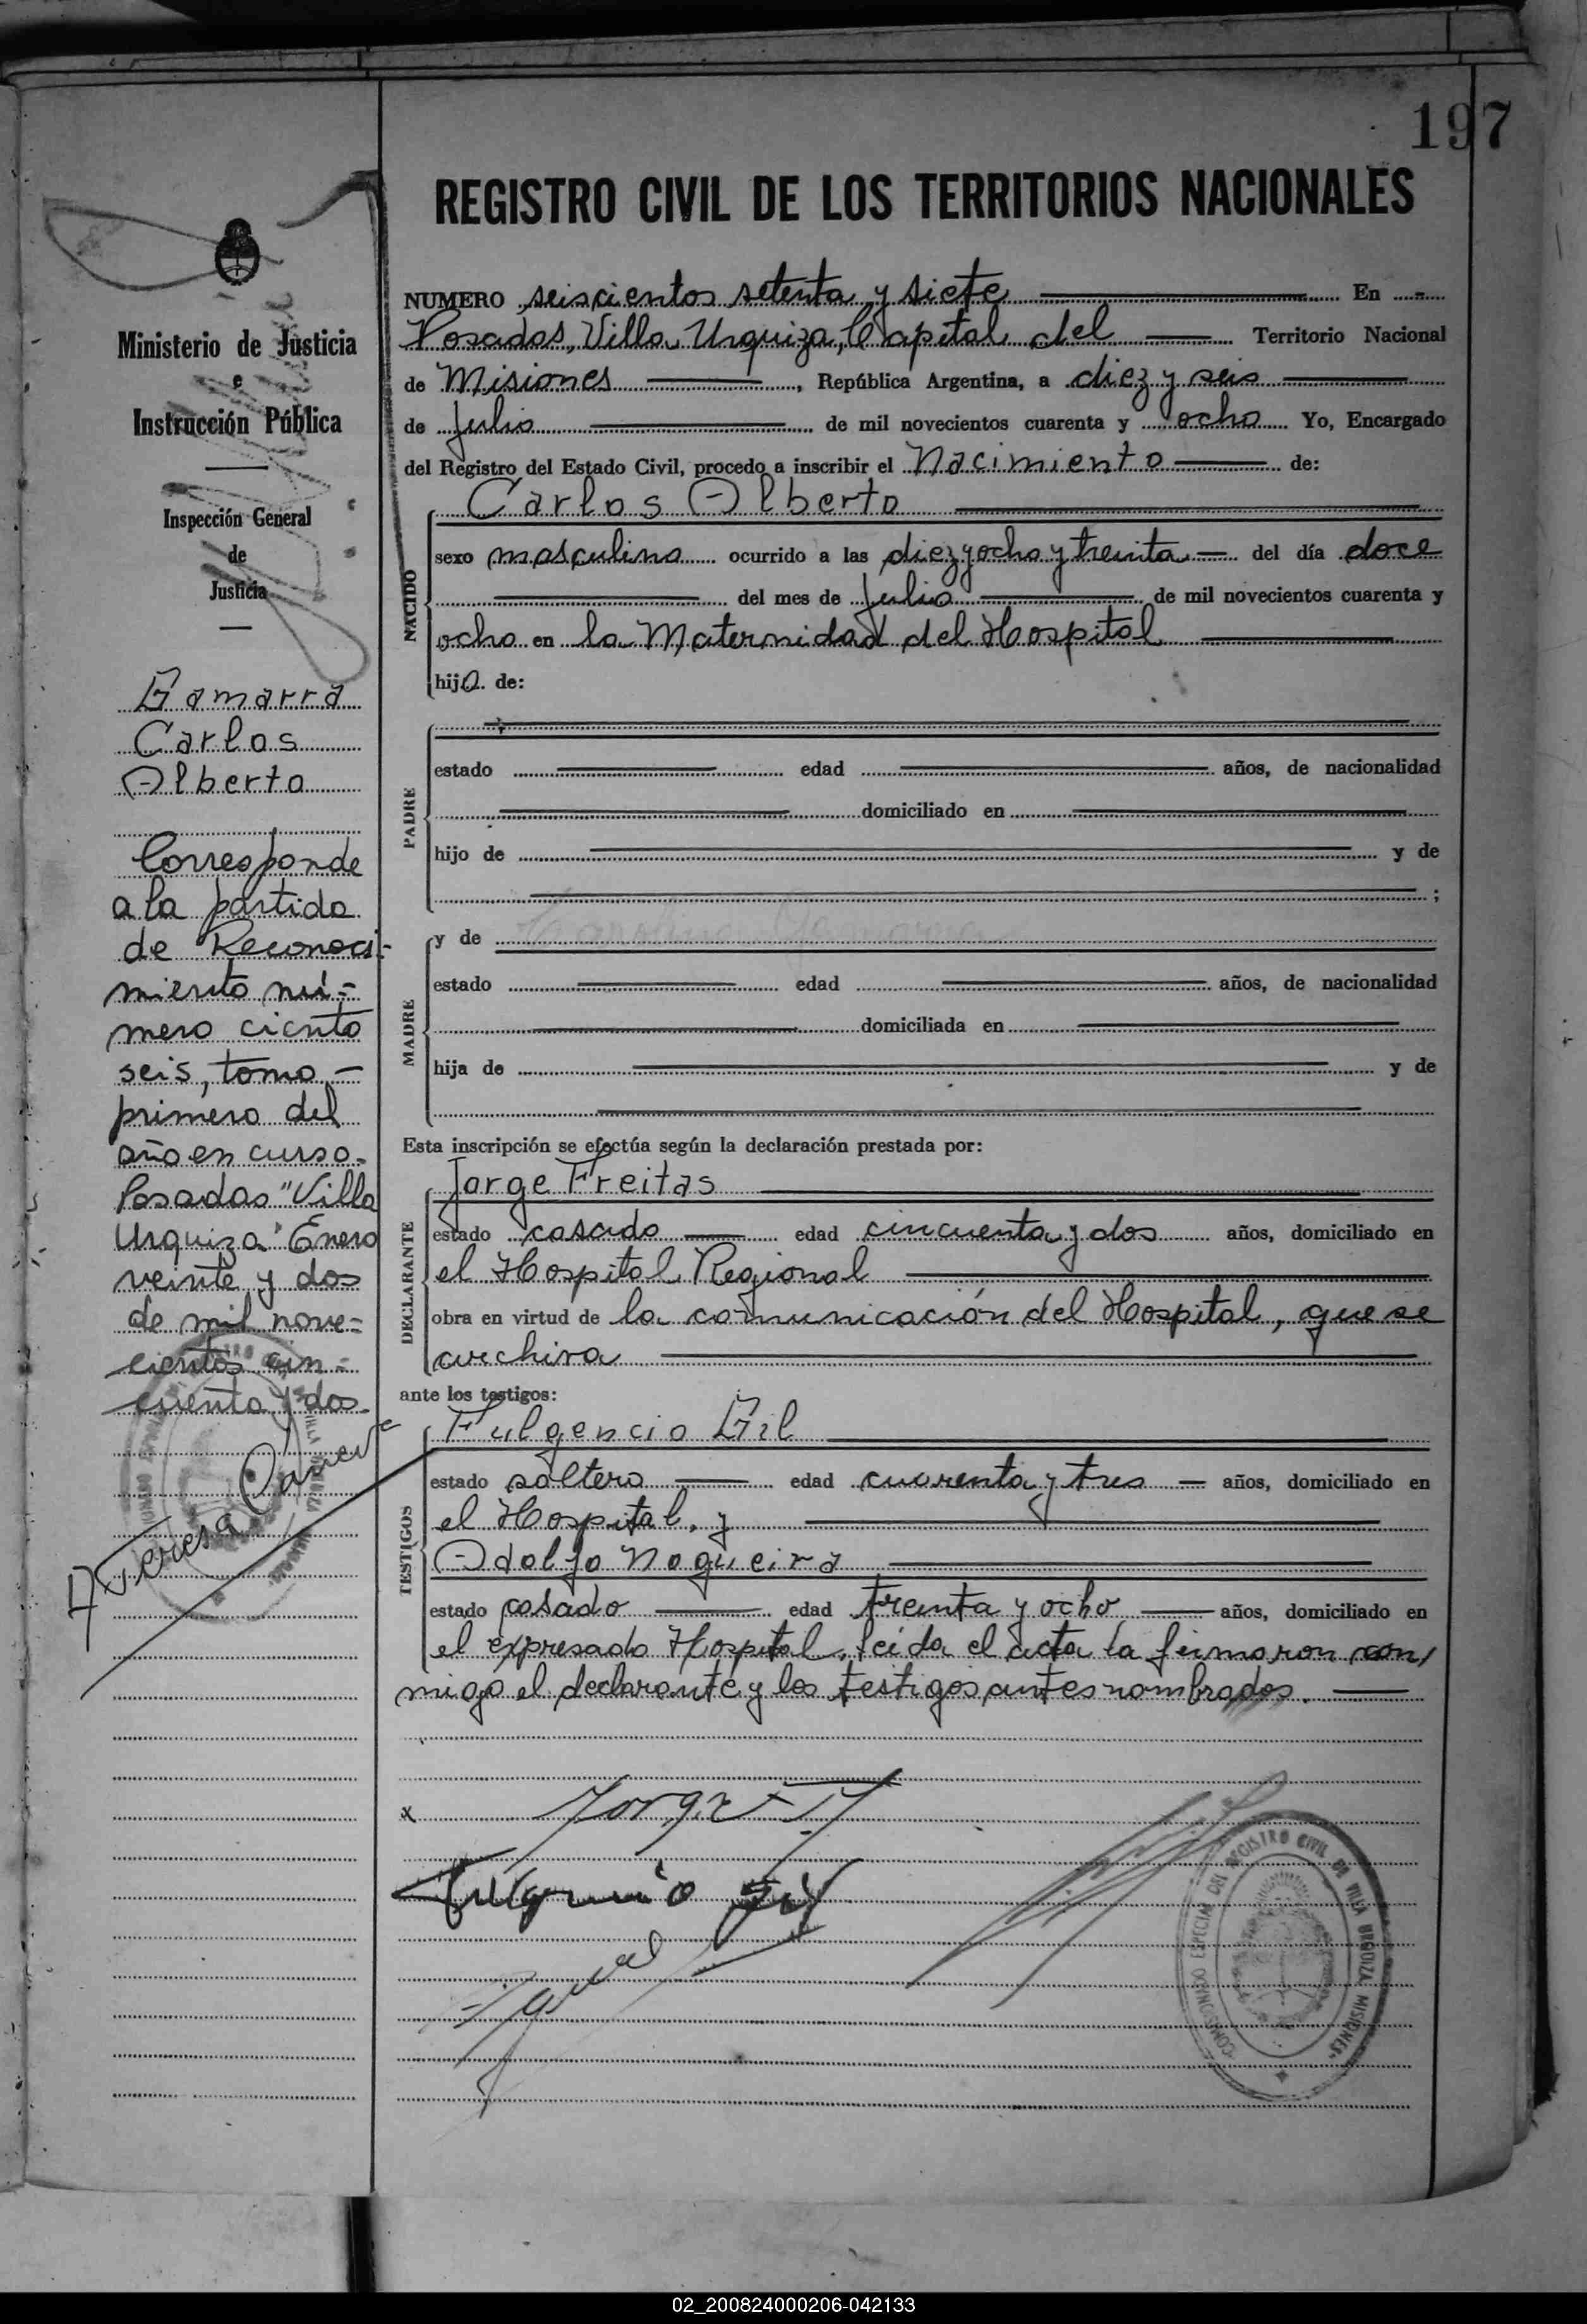 197
REGISTRO CIVIL DE LOS TERRITORIOS NACIONALES
Ministerio de Justicia
e
Instrucción Pública
Inspección General
de
Justicia
Gamarra
Carlos
Alberto
Corresponde
a la partida
de Reconoci-
miento nú-
mero ciento
seis, tomo
primero del
año en curso.
Posadas "Villa
Urquiza" Enero
veinte y dos
de mil nove-
cientos cin-
cuenta y dos.
Teresa
NUMERO seiscientos setenta y siete En
Posadas, Villa Urquiza, Capital del Territorio Nacional
de Misiones, República Argentina, a diez y seis
de Julio de mil novecientos cuarenta y ocho Yo, Encargado
del Registro del Estado Civil, procedo a inscribir el Nacimiento de:
NACIDO
Carlos Alberto
sexo masculino ocurrido a las diez y ocho y treinta del día doce
del mes de Julio de mil novecientos cuarenta y
ocho en la Maternidad del Hospital
hijo de:
PADRE
estado edad años, de nacionalidad
domiciliado en
hijo de y de
;
MADRE
y de
estado edad años, de nacionalidad
domiciliada en
hija de y de
Esta inscripción se efectúa según la declaración prestada por:
DECLARANTE
Jorge Freitas
estado casado edad cincuenta y dos años, domiciliado en
el Hospital Regional
obra en virtud de la comunicación del Hospital, que se
archiva
ante los testigos:
TESTIGOS
Fulgencio Gil
estado soltero edad cuarenta y tres años, domiciliado en
el Hospital, y
Adolfo Nogueira
estado casado edad treinta y ocho años, domiciliado en
el expresado Hospital. Leida el acta la firmaron con/
migo el declarante y los testigos antes nombrados.
x Jorge
Fulgencio Gil
COMISIONADO ESPECIAL DEL REGISTRO CIVIL DE VILLA URQUIZA MISIONES
02_200824000206-042133